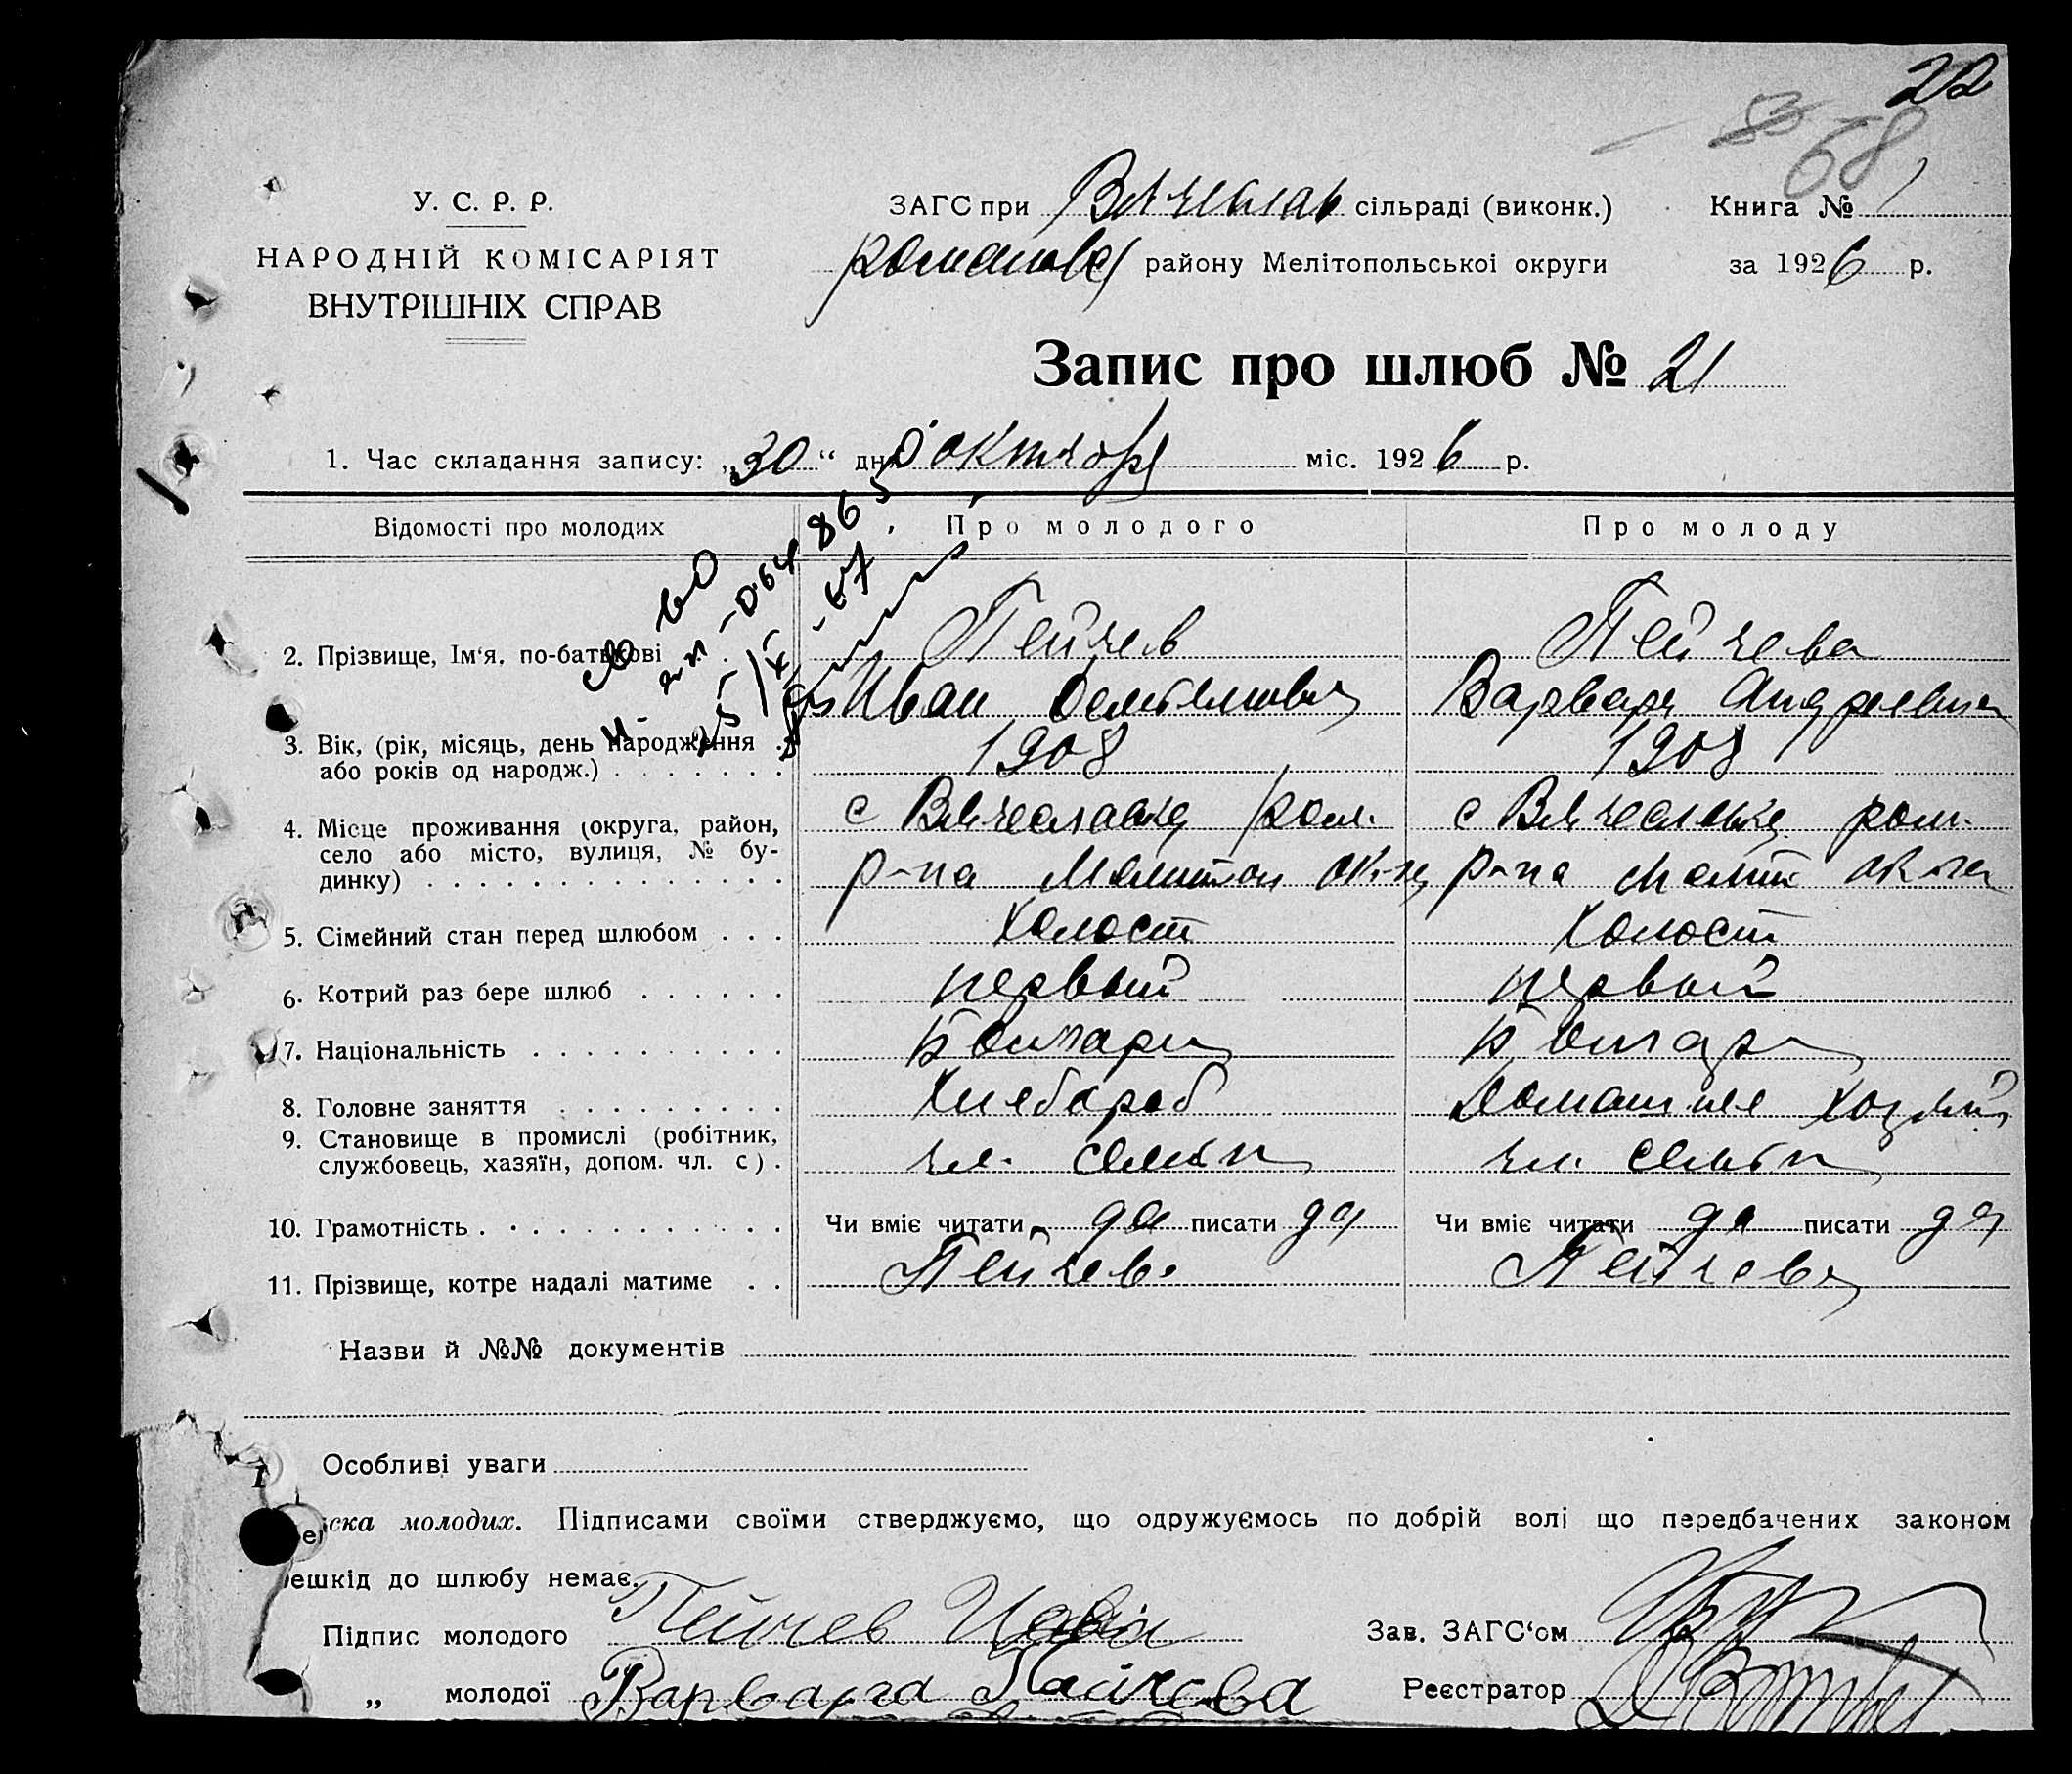 22
53
68
У. С. Р. Р.
НАРОДНІЙ КОМІСАРІЯТ
ВНУТРІШНІХ СПРАВ
ЗАГС при Вячеслав сільраді (виконк.) Книга № 1
району Мелітопольської округи за 1926 р.
Запис про шлюб № 21
1. Час складання запису: „30“ дня октября міс. 1926 р.
Відомості про молодих Про молодого Про молоду
2. Прізвище, Ім'я, по-батькові Пейчев Пейчева
Иван Варвара Андреевна
3. Вік, (рік, місяць, день народження 1908 1908
або років од народж.)
4. Місце проживання (округа, район, с Вячеславка ром. с Вячеславка ром.
село або місто, вулиця, № бу-
динку) р-на Мелитоп ок-га р-на Мелит ок-га
5. Сімейний стан перед шлюбом Холост Холост
6. Котрий раз бере шлюб первый первый
7. Національність Болгари Болгари
8. Головне заняття Хлебороб Домашнее
9. Становище в промислі (робітник,
службовець, хазяїн, допом. чл. с). чл. семьи чл. семьи
10. Грамотність Чи вміє читати да писати да Чи вміє читати да писати да
11. Прізвище, котре надалі матиме Пейчев Пейчева
Назви й №№ документів
Особливі уваги
ска молодих. Підписами своїми стверджуємо, що одружуємось по добрій волі що передбачених законом
ешкід до шлюбу немає.
Підпис молодого Пейчев Иван Зав. ЗАГС'ом
„ молодої Варвара Пейчева Реєстратор